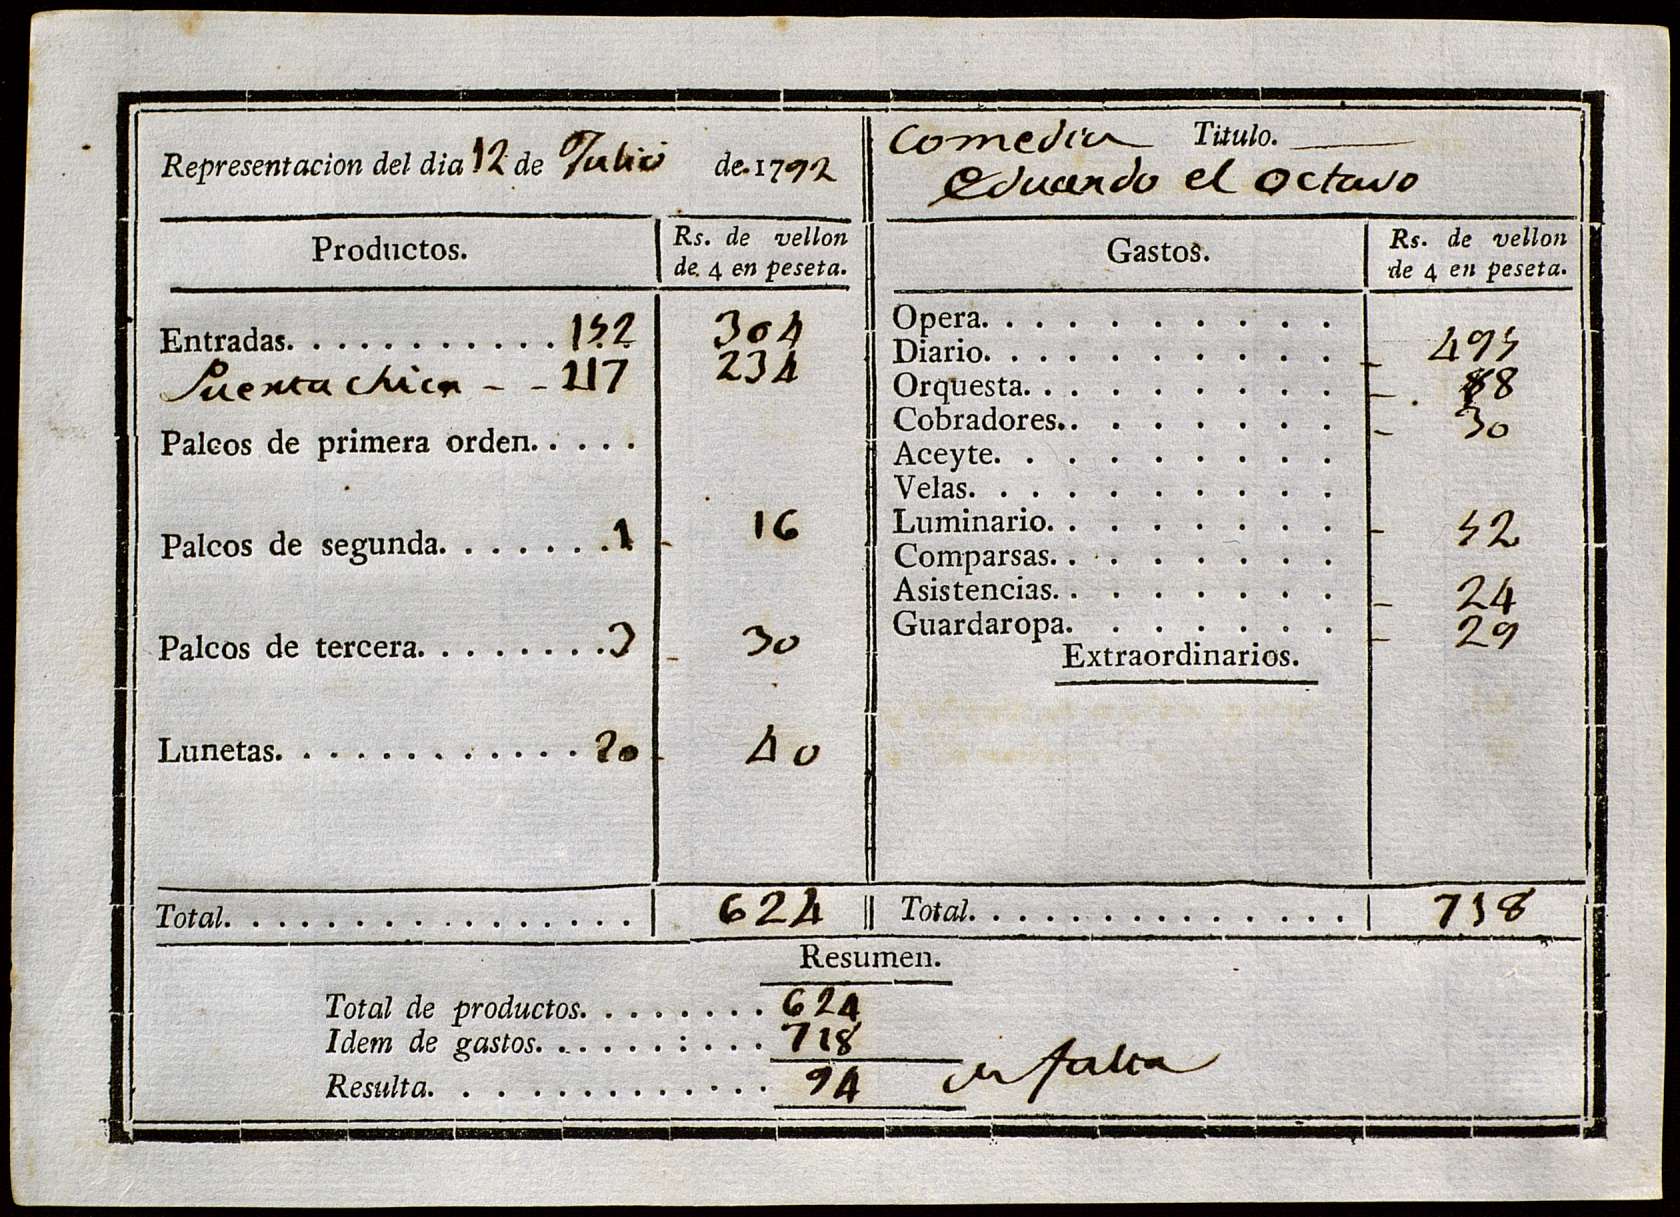 Representacion del dia 12 de Julio de 1792
Comedia Titulo.
Eduardo el Octavo
Productos.
Rs. de vellon
de 4 en peseta.
Gastos.
Rs. de vellon
de 4 en peseta.
Entradas. 152 304
Puerta chica - - 117 234
Palcos de primera orden.
Palcos de segunda. 1 16
Palcos de tercera. 3 30
Lunetas. 20 40
Total. 624
Opera.
Diario. 495
Orquesta. 88
Cobradores. 30
Aceyte.
Velas.
Luminario. 52
Comparsas.
Asistencias. 24
Guardaropa. 29
Extraordinarios.
Total. 718
Resumen.
Total de productos. 624
Idem de gastos. 718
Resulta. 94 de falta